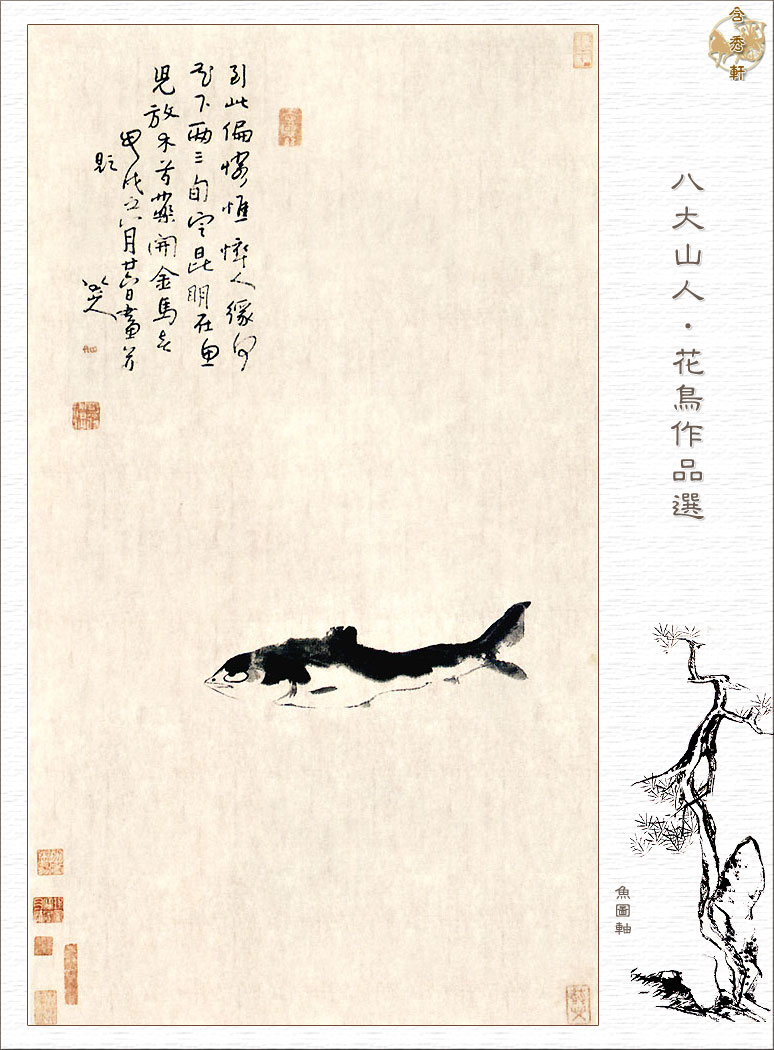 含秀軒
八大山人·花鳥作品選
到此偏憐憔悴人緣何
花下兩三旬定昆明在魚
兒放木芍藥開金馬春
甲戌之六月廿六日畫并
題
八大山人
魚圖軸